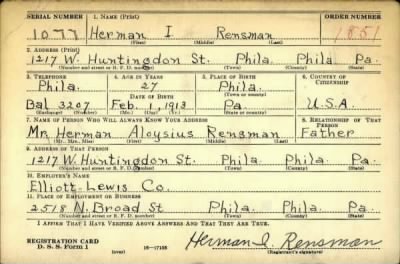 SERIAL NUMBER 1. NAME (Print) ORDER NUMBER
1077 Herman I Rensman 1851
(First) (Middle) (Last)
2. ADDRESS (Print)
1217 W. Huntingdon St. Phila. Phila. Pa.
(Number and street or R. F. D. number) (Town) (County) (State)
3. TELEPHONE 4. AGE IN YEARS 5. PLACE OF BIRTH 6. COUNTRY OF CITIZENSHIP
Phila. 27 Phila.
DATE OF BIRTH (Town or county)
Bal 3207 Feb. 1, 1913 Pa. U.S.A.
(Exchange) (Number) (Mo.) (Day) (Yr.) (State or country)
7. NAME OF PERSON WHO WILL ALWAYS KNOW YOUR ADDRESS 8. RELATIONSHIP OF THAT PERSON
Mr. Herman Aloysius Rensman Father
(Mr., Mrs., Miss) (First) (Middle) (Last)
9. ADDRESS OF THAT PERSON
1217 W. Huntingdon St. Phila. Phila. Pa.
(Number and street or R. F. D. number) (Town) (County) (State)
10. EMPLOYER'S NAME
Elliott-Lewis Co.
11. PLACE OF EMPLOYMENT OR BUSINESS
2518 N. Broad St Phila. Phila. Pa.
(Number and street or R. F. D. number) (Town) (County) (State)
I AFFIRM THAT I HAVE VERIFIED ABOVE ANSWERS AND THAT THEY ARE TRUE.
REGISTRATION CARD
D. S. S. Form 1 (over) 16-17105 Herman I. Rensman
(Registrant's signature)